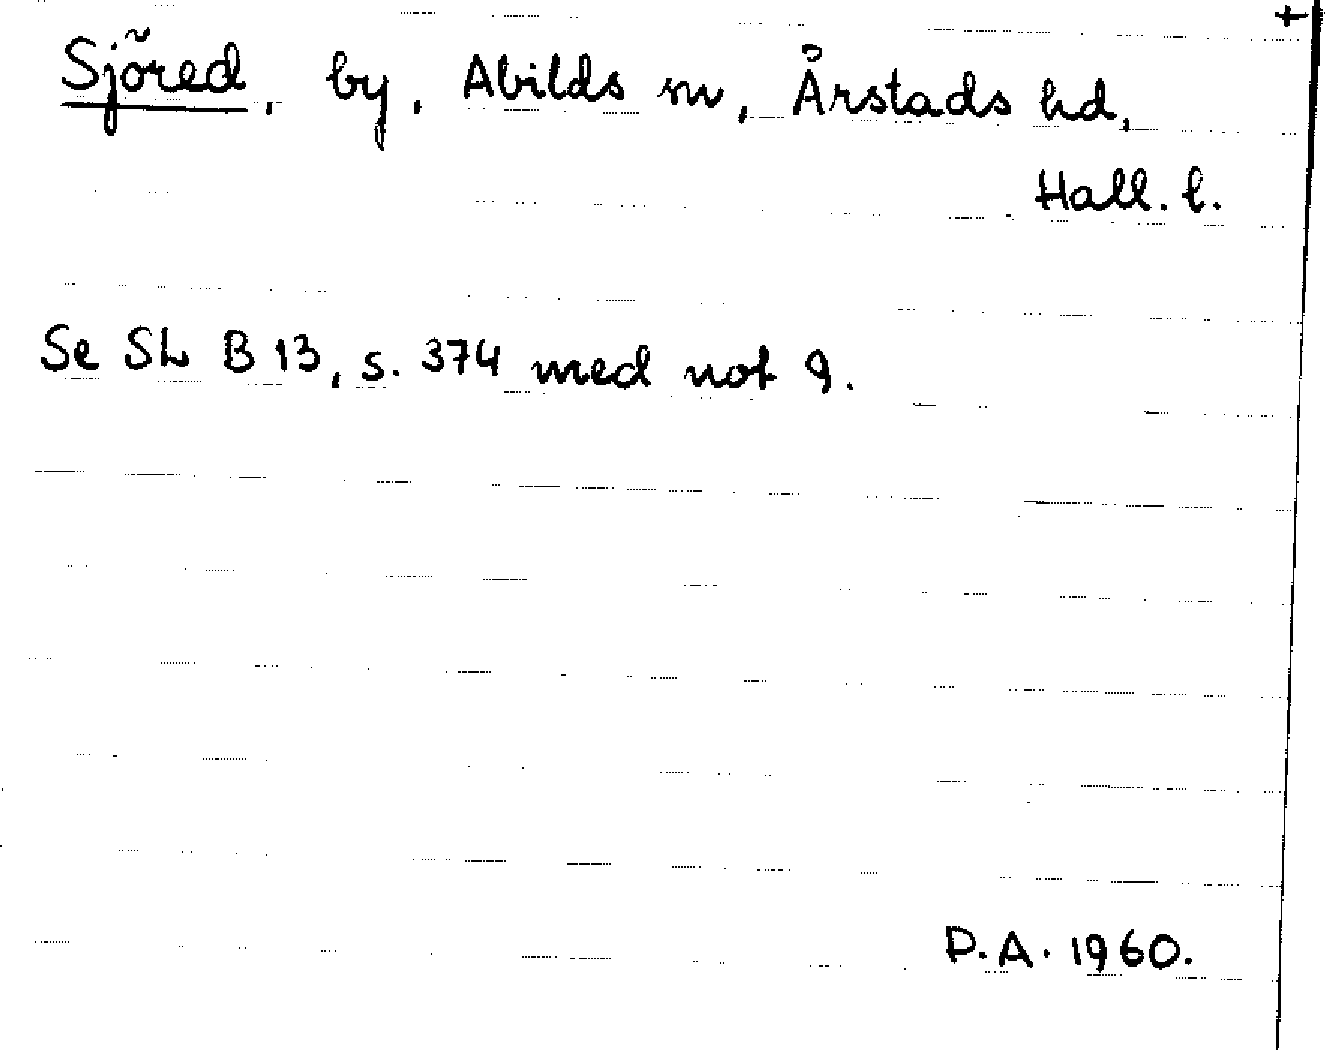 +
Sjöred, by, Abilds sn, Årstads hd,
Hall. l.
Se SL B 13, s. 374 med not 9.
D.A. 1960.